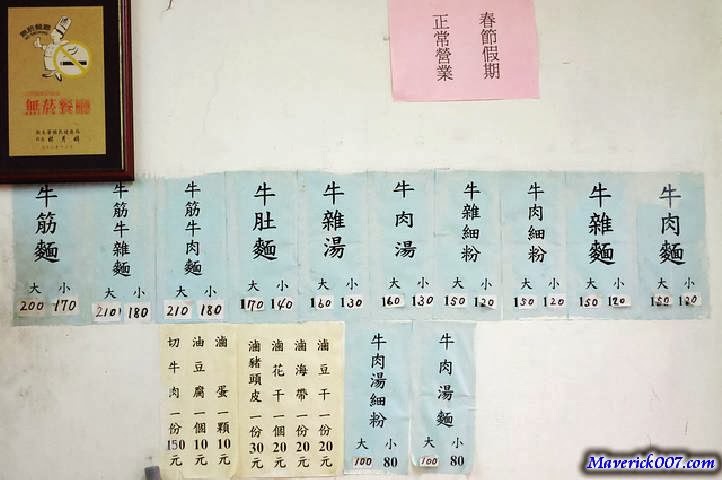 春節假期
正常營業
無菸餐廳
牛肉麵 大 150 小 120
牛雜麵 大 150 小 120
牛肉細粉 大 150 小 120
牛雜細粉 大 150 小 120
牛肉湯 大 160 小 130
牛雜湯 大 160 小 130
牛肚麵 大 170 小 140
牛筋牛肉麵 大 210 小 180
牛筋牛雜麵 大 210 小 180
牛筋麵 大 200 小 170
牛肉湯麵 大 100 小 80
牛肉湯細粉 大 100 小 80
滷豆干一份20元
滷海帶一份20元
滷花干一個20元
滷豬頭皮一份30元
滷蛋一顆10元
滷豆腐一個10元
切牛肉一份150元
Maverick007.com